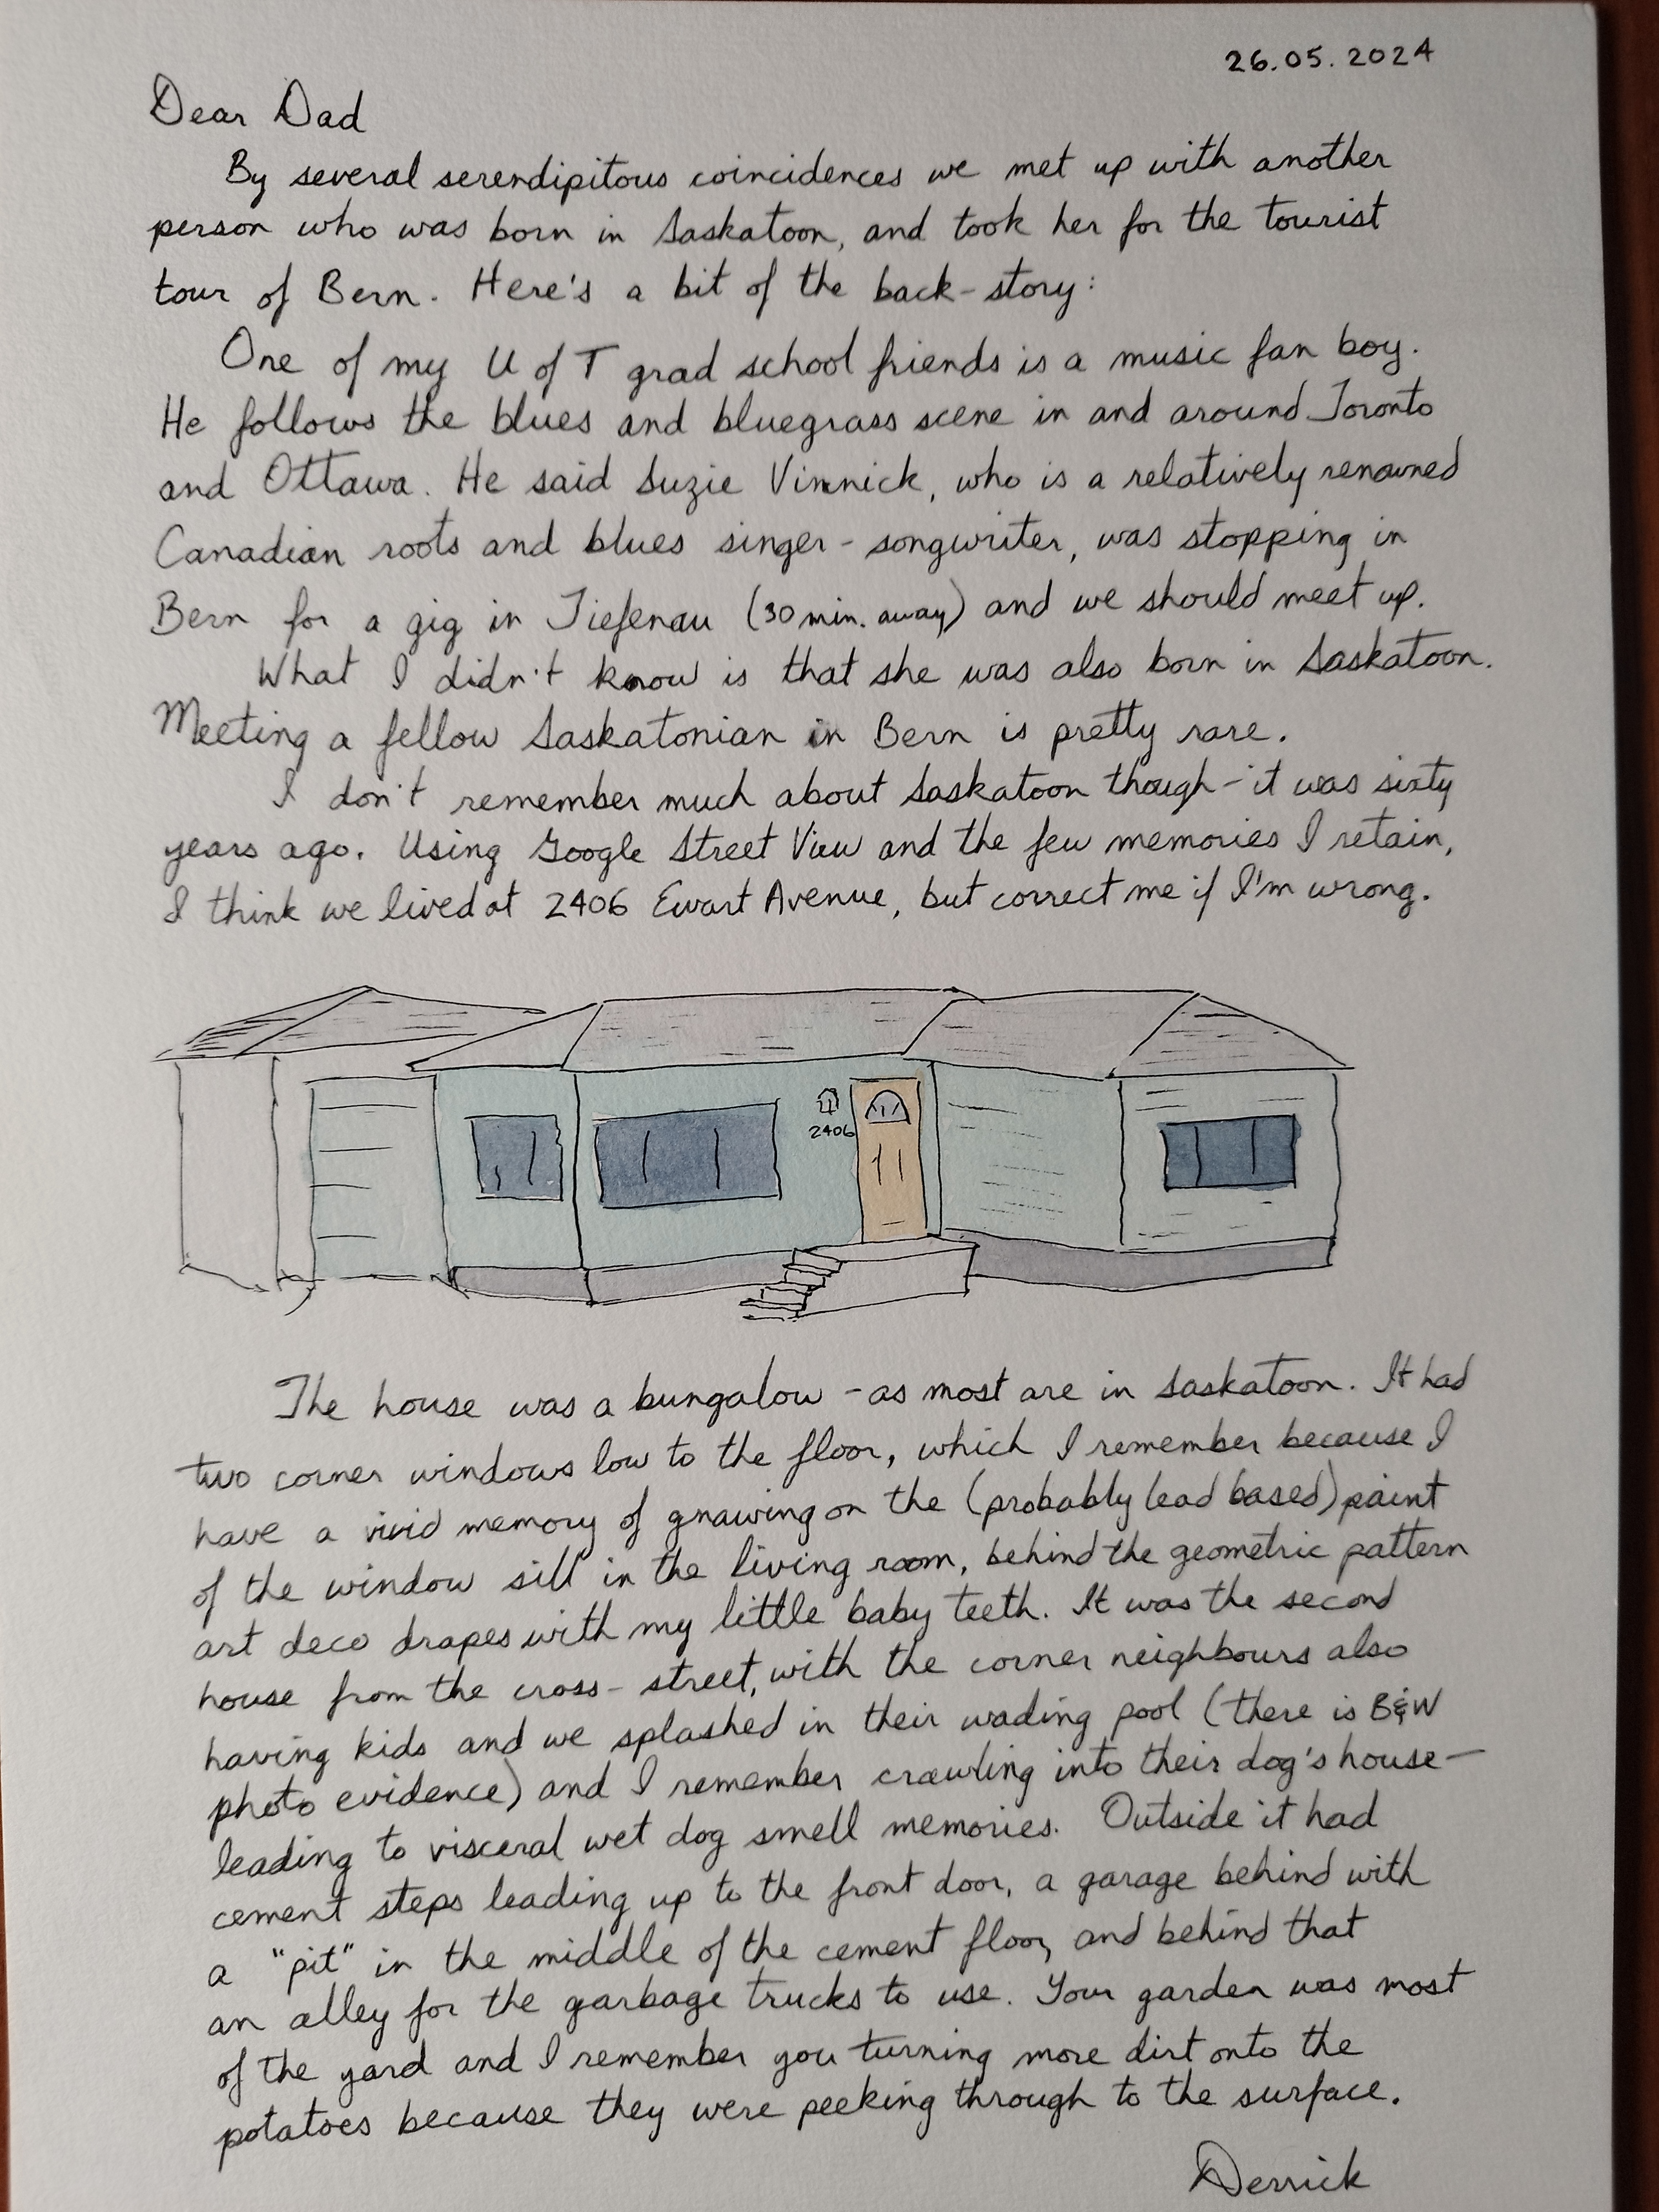 26.05.2024
Dear Dad
By several serendipitous coincidences we met up with another
person who was born in Saskatoon, and took her for the tourist
tour of Bern. Here's a bit of the back-story:
One of my U of T grad school friends is a music fan boy.
He follows the blues and bluegrass scene in and around Toronto
and Ottawa. He said Suzie Vinnick, who is a relatively renowned
Canadian roots and blues singer-songwriter, was stopping in
Bern for a gig in Tiefenau (30 min. away) and we should meet up.
What I didn't know is that she was also born in Saskatoon.
Meeting a fellow Saskatonian in Bern is pretty rare.
I don't remember much about Saskatoon though - it was sixty
years ago. Using Google Street View and the few memories I retain,
I think we lived at 2406 Ewart Avenue, but correct me if I'm wrong.
2406
The house was a bungalow - as most are in Saskatoon. It had
two corner windows low to the floor, which I remember because I
have a vivid memory of gnawing on the (probably lead based) paint
of the window sill in the living room, behind the geometric pattern
art deco drapes with my little baby teeth. It was the second
house from the cross-street, with the corner neighbours also
having kids and we splashed in their wading pool (there is B&W
photo evidence) and I remember crawling into their dog's house—
leading to visceral wet dog smell memories. Outside it had
cement steps leading up to the front door, a garage behind with
a "pit" in the middle of the cement floor, and behind that
an alley for the garbage trucks to use. Your garden was most
of the yard and I remember you turning more dirt onto the
potatoes because they were peeking through to the surface.
Derrick